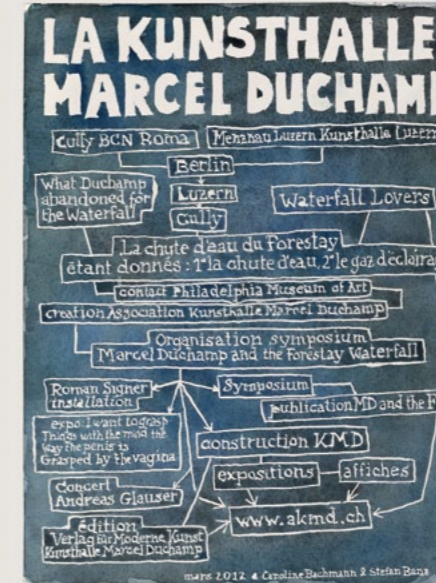 LA KUNSTHALLE
MARCEL DUCHAM
Cully BCN Roma
Menznau Luzern Kunsthalle Luzern
Berlin
What Duchamp
abandoned for
the Waterfall
Luzern
Cully
Waterfall Lovers
La chute d'eau du Forestay
étant donnés : 1° la chute d'eau, 2° le gaz d'éclaira
contact Philadelphia Museum of Art
creation Association Kunsthalle Marcel Duchamp
Organisation symposium
Marcel Duchamp and the Forestay Waterfall
Roman Signer
installation
Symposium
publication MD and the F
expo: I want to grasp
Things with the mind the
way the penis is
Grasped by the vagina
construction KMD
expositions
affiches
Concert
Andreas Glauser
www.akmd.ch
édition
Verlag für Moderne Kunst
Kunsthalle Marcel Duchamp
mars 2012 & Caroline Bachmann & Stefan Banz